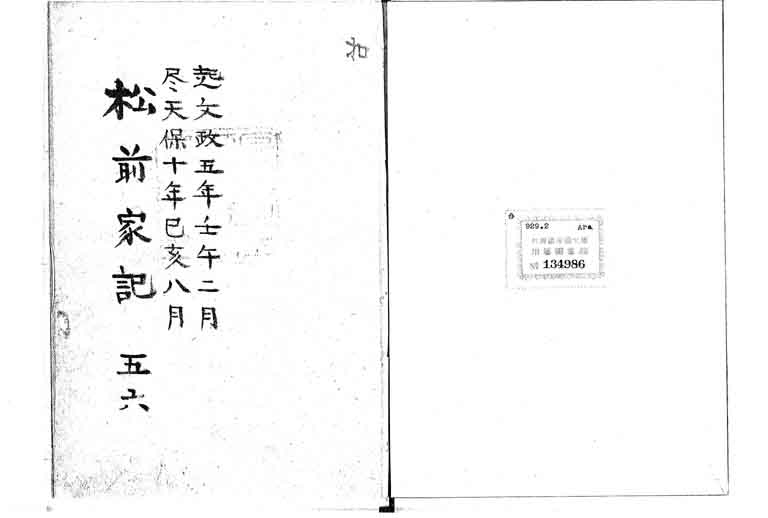 929.2 Ara
134986
起文政五年壬午二月
尽天保十年己亥八月
松前家記 五六